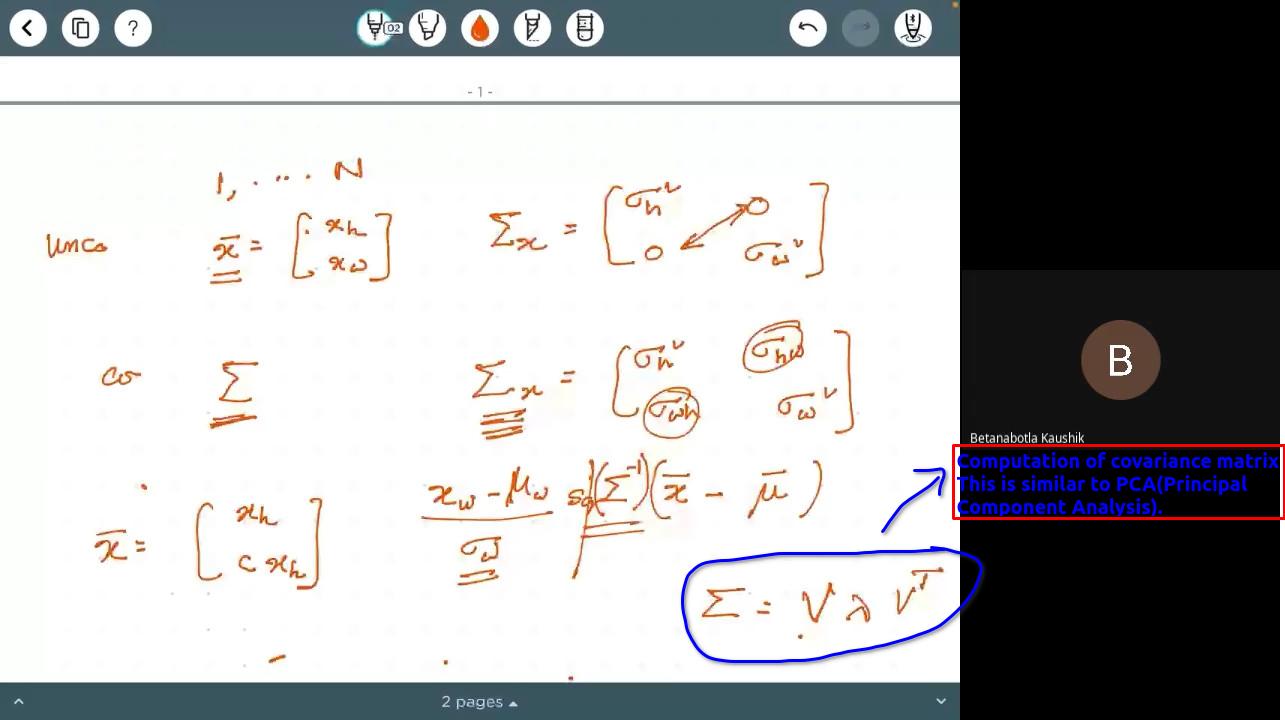 02
?
- 1 -
1, . ... . N
unco x̄ = [ x_h x_w ] Σ_x = [ σ_h² 0 0 σ_w² ]
co Σ Σ_x = [ σ_h² σ_hw σ_wh σ_w² ]
x̄ = [ x_h c x_h ] x_w - μ_w / σ_w (Σ⁻¹)(x̄ - μ̄)
Σ = V λ Vᵀ
2 pages
B
Betanabotla Kaushik
Computation of covariance matrix
This is similar to PCA(Principal
Component Analysis).